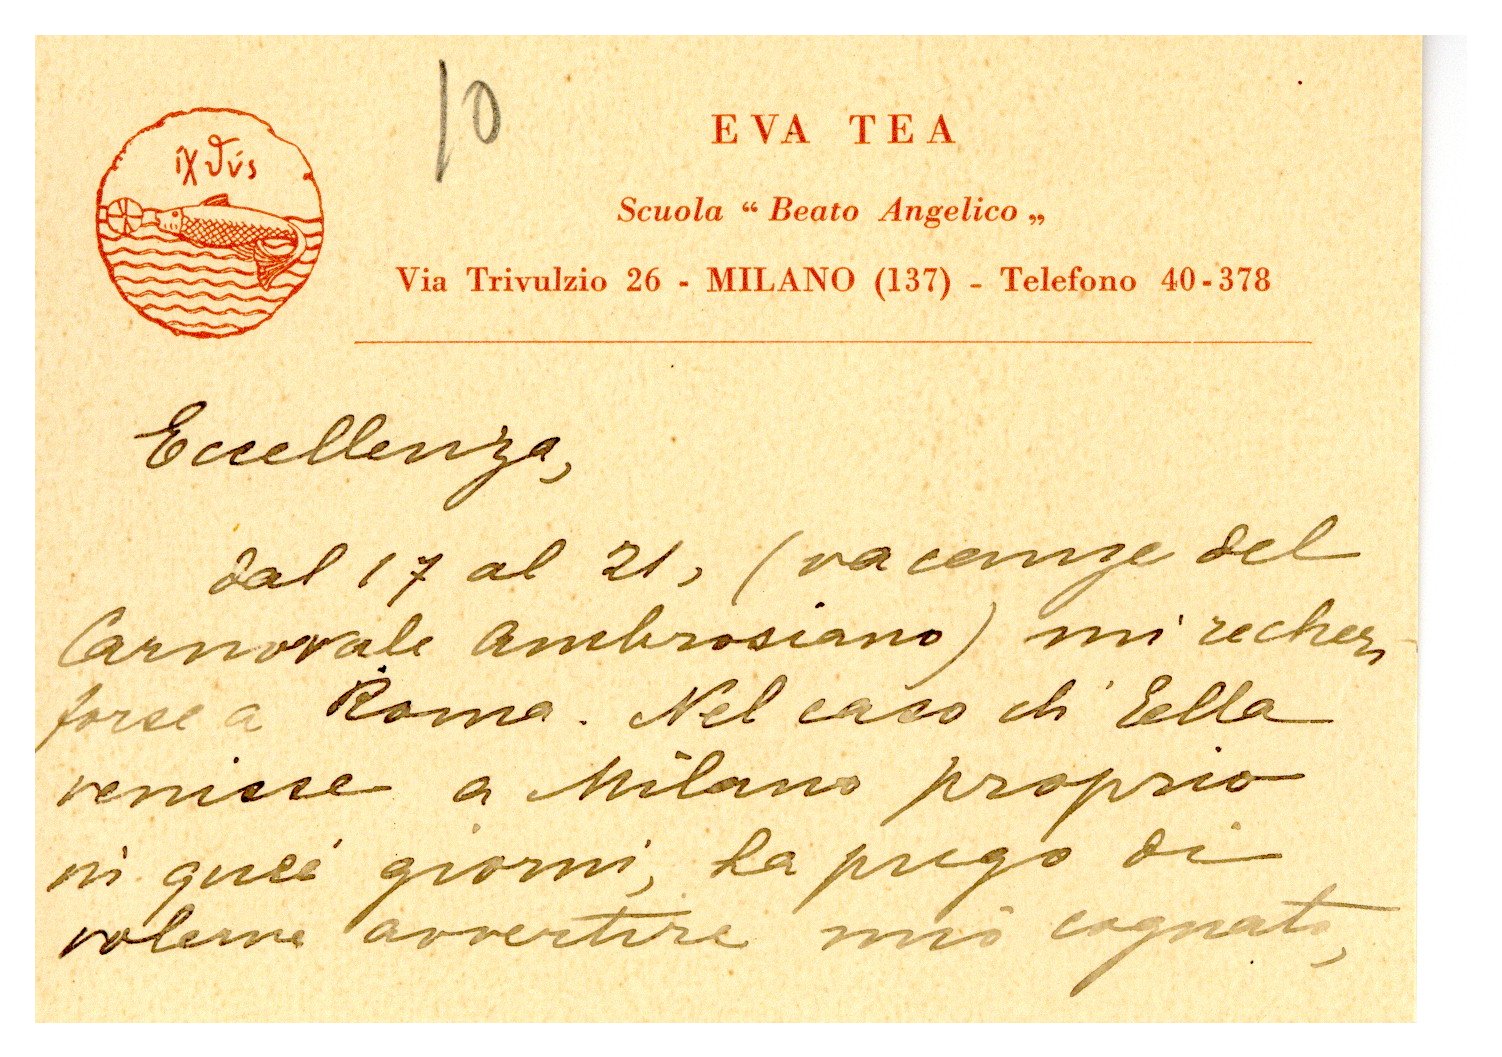 ἰχθύς
10
EVA TEA
Scuola “ Beato Angelico „
Via Trivulzio 26 - MILANO (137) - Telefono 40-378
Eccellenza,
dal 17 al 21, (vacanze del
Carnovale Ambrosiano) mi recherò
forse a Roma. Nel caso ch' Ella
venisse a Milano proprio
in quei giorni, La prego di
volerne avvertire mio cognato,